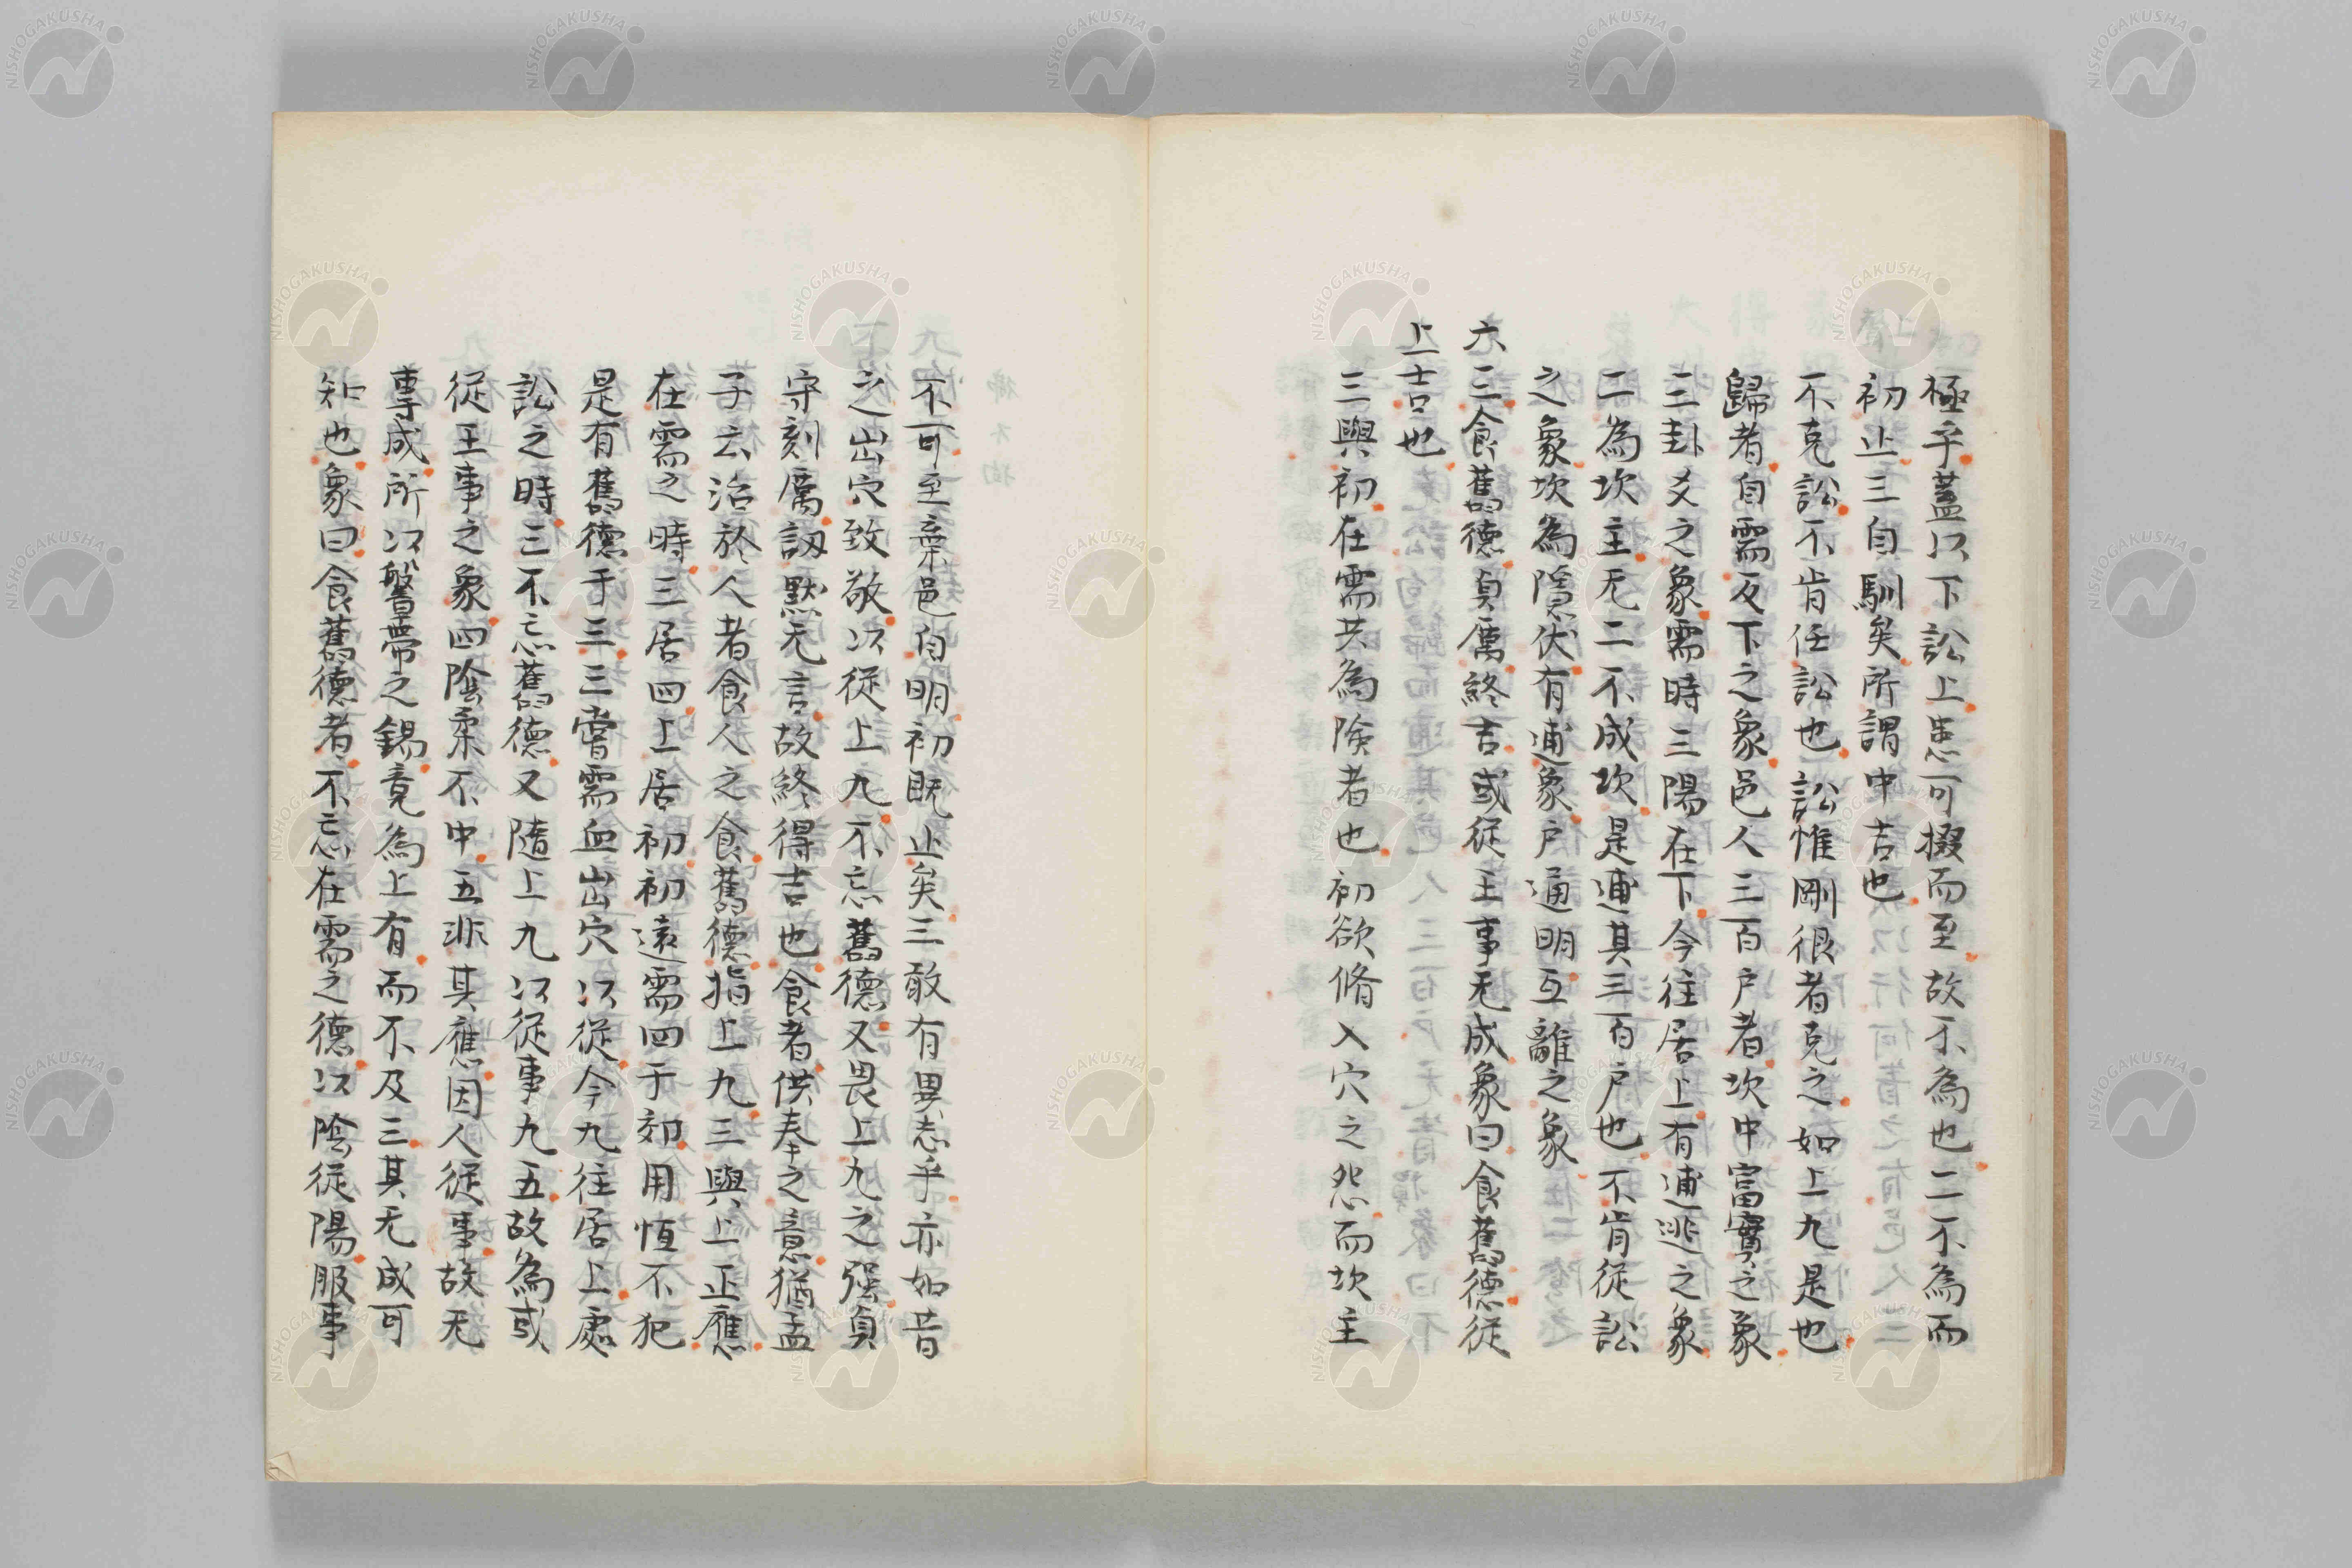 極乎蓋以下訟上患可掇而至故不為也二不為而
初止三自馴矣所謂中吉也
不克訟不肯任訟也訟惟剛很者克之如上九是也
歸者自需反下之象邑人三百戶者坎中富實之象
三卦爻之象需時三陽在下今往居上有逋逃之象
二為坎主无二不成坎是逋其三百戶也不肯從訟
之象坎為隱伏有逋象戶通明互離之象
六三食舊德貞厲終吉或從王事无成象曰食舊德從
上吉也
三與初在需共為險者也初欲脩入穴之怨而坎主
不可至棄邑自明初既止矣三敢有異志乎亦如昔
之出穴致敬以從上九不忘舊德又畏上九之強貞
守刻厲訒默无言故終得吉也食者供奉之意猶孟
子云治於人者食人之食舊德指上九三與上正應
在需之時三居四上居初初遠需四于郊用恆不犯
是有舊德于三三嘗需血出穴以從今九往居上處
訟之時三不忘舊德又隨上九以從事九五故為或
從王事之象四陰柔不中五非其應因人從事故无
專成所以鞶帶之錫竟為上有而不及三其无成可
知也象曰食舊德者不忘在需之德以陰從陽服事
NISHOGAKUSHA